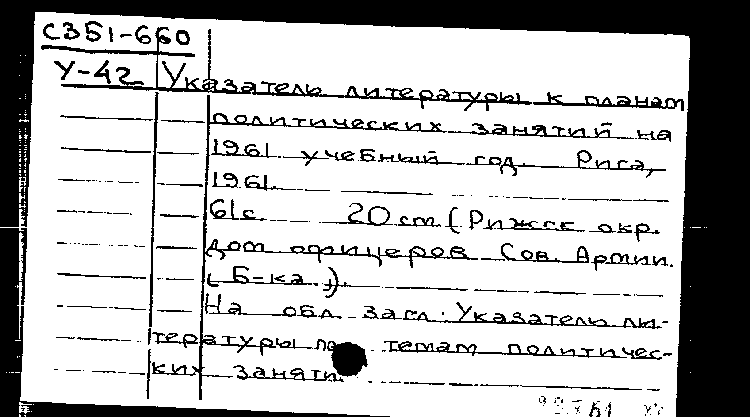 С351-660
У-42 Указатель литературы к планам
политических занятий на
1961 учебный год. Рига,
1961.
61с. 20 cm (Рижск окр.
дом офицеров Сов. Армии.
(Б-ка.).
На обл. загл. Указатель ли-
тературы по темам политичес-
ких занятий